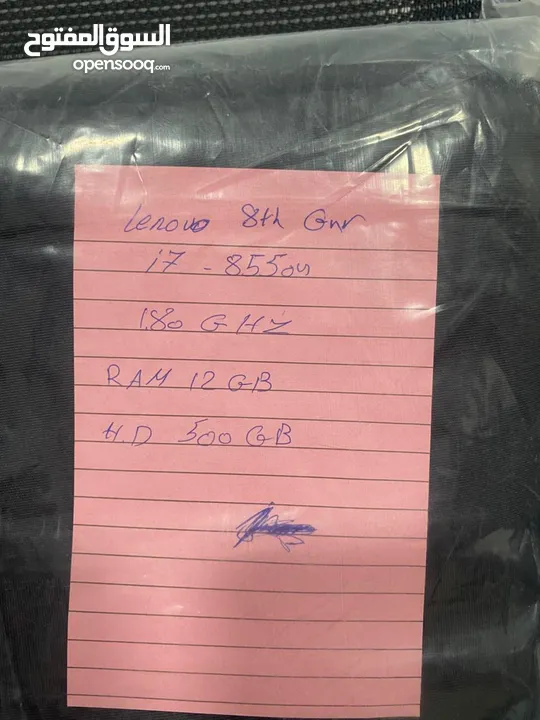 السوق المفتوح
opensooq.com
Lenovo 8th Gnr
i7 - 8550u
1.80 GHZ
RAM 12 GB
H.D 500 GB